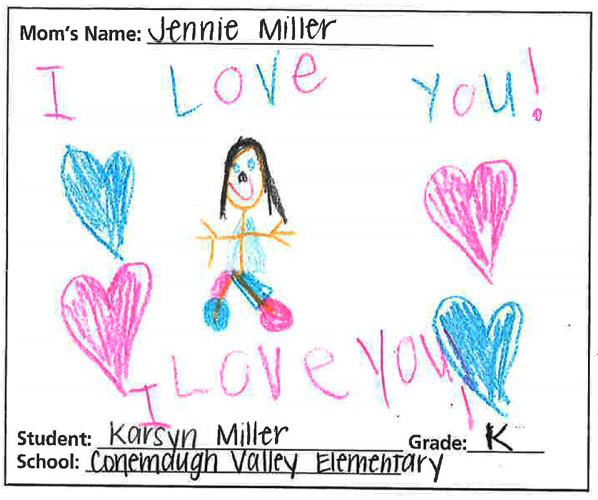 Mom's Name: Jennie Miller
I Love You!
I Love You!
Student: Karsyn Miller Grade: K
School: Conemaugh Valley Elementary